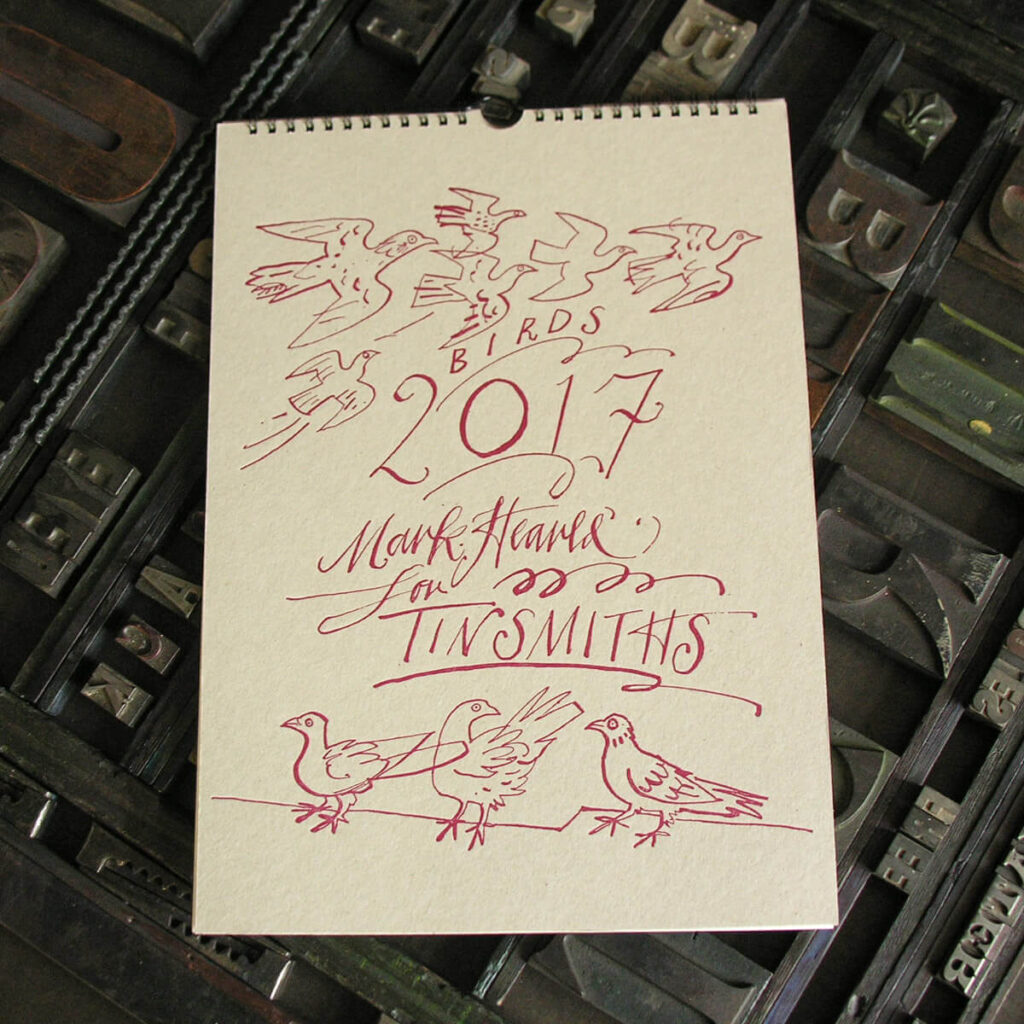 BIRDS
2017
Mark Hearld
for
TINSMITHS